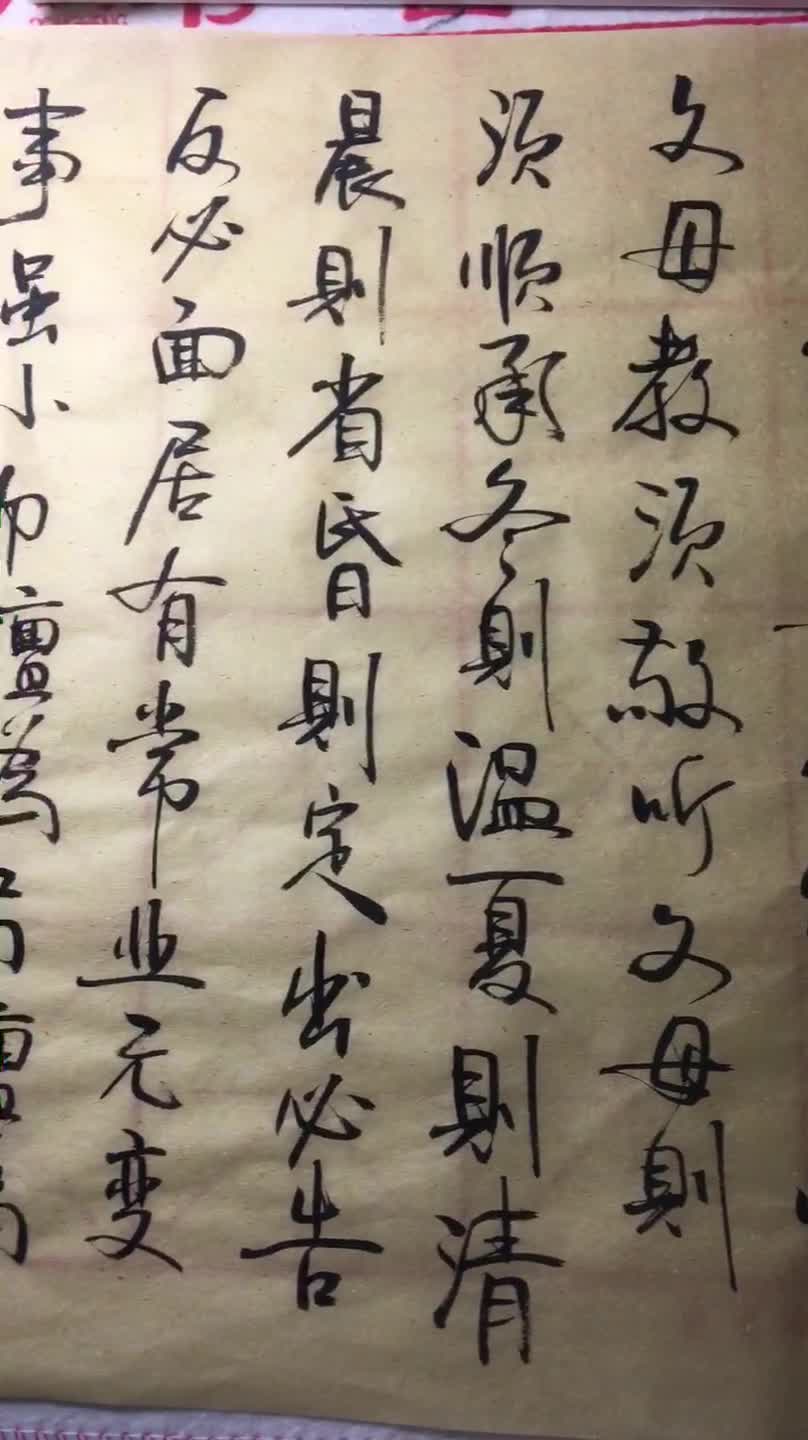 父母教须敬听父母则
须顺承冬则温夏则清
晨则省昏则定出必告
反必面居有常业无变
事虽小勿擅为